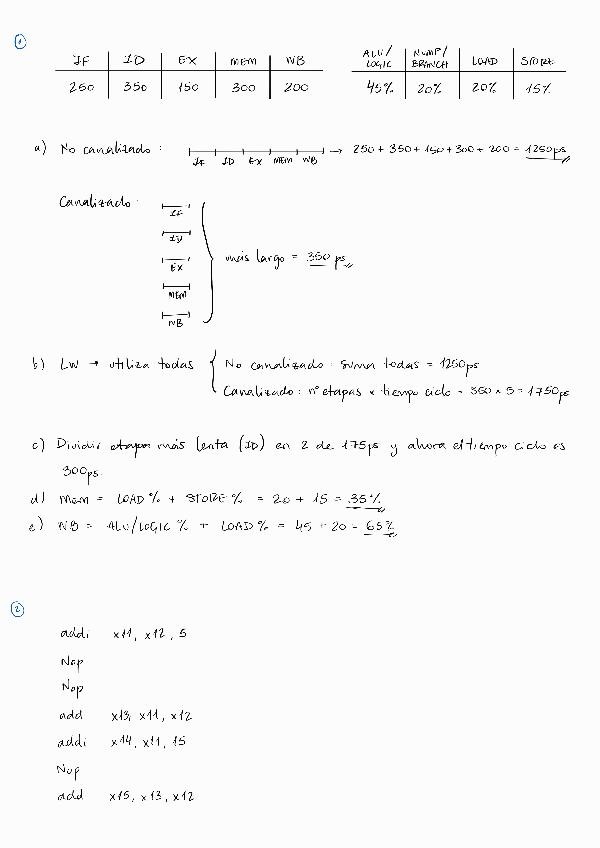 1
IF ID EX MEM WB ALU/LOGIC JUMP/BRANCH LOAD STORE
250 350 150 300 200 45% 20% 20% 15%
a) No canalizado: IF ID EX MEM WB → 250 + 350 + 150 + 300 + 200 = 1250ps
Canalizado:
IF
ID
EX más largo = 350 ps
MEM
WB
b) LW → utiliza todas No canalizado: suma todas = 1250ps
Canalizado: nº etapas × tiempo ciclo = 350 × 5 = 1750ps
c) Dividir etapa más lenta (ID) en 2 de 175ps y ahora el tiempo ciclo es
300ps.
d) Mem = LOAD% + STORE% = 20 + 15 = 35%
e) WB = ALU/LOGIC % + LOAD% = 45 + 20 = 65%
2
addi x11, x12, 5
Nop
Nop
add x13, x11, x12
addi x14, x11, 15
Nop
add x15, x13, x12